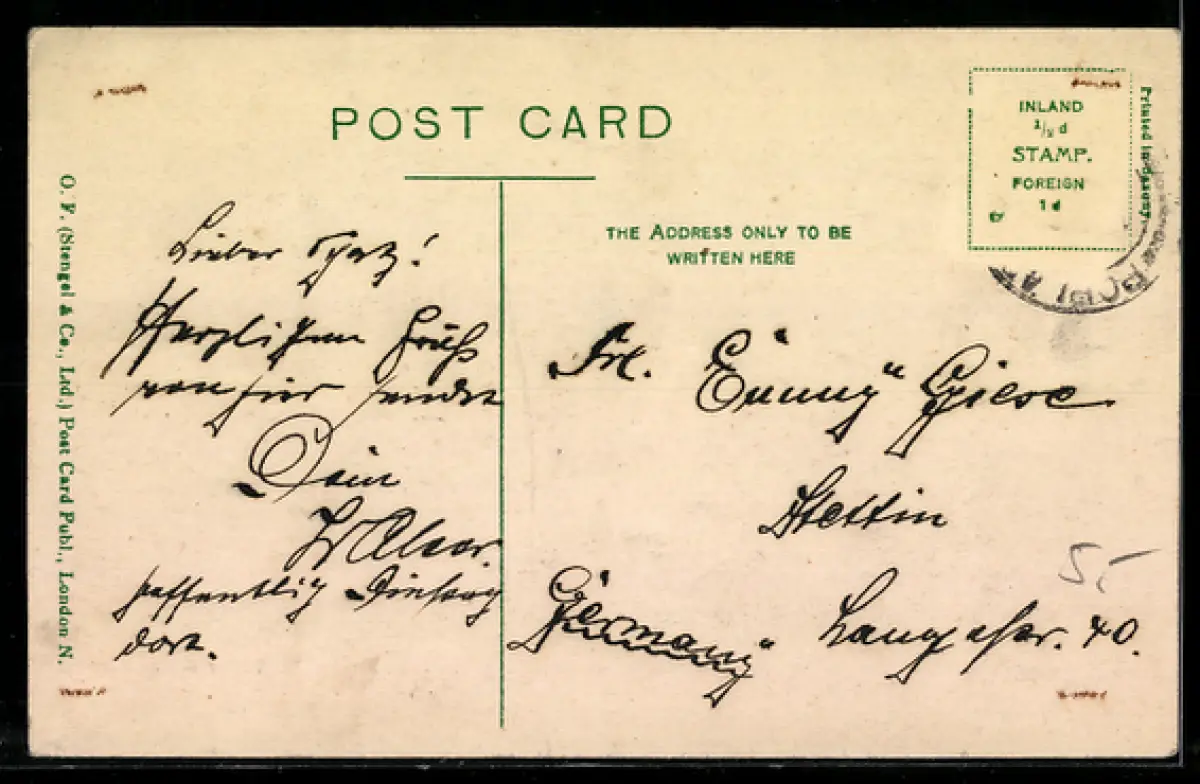 POST CARD
INLAND
1/2 d
STAMP.
FOREIGN
1d
Printed in Saxony
O. F. (Stengel & Co., Ltd.) Post Card Publ., London N.
THE ADDRESS ONLY TO BE
WRITTEN HERE
POPLAR
Lieber Schatz!
Herzlichen Gruß
von hier sendet
Dein
hoffentlich Dienstag
dort.
Frl. Giese
Stettin
Germany
Langestr. 40.